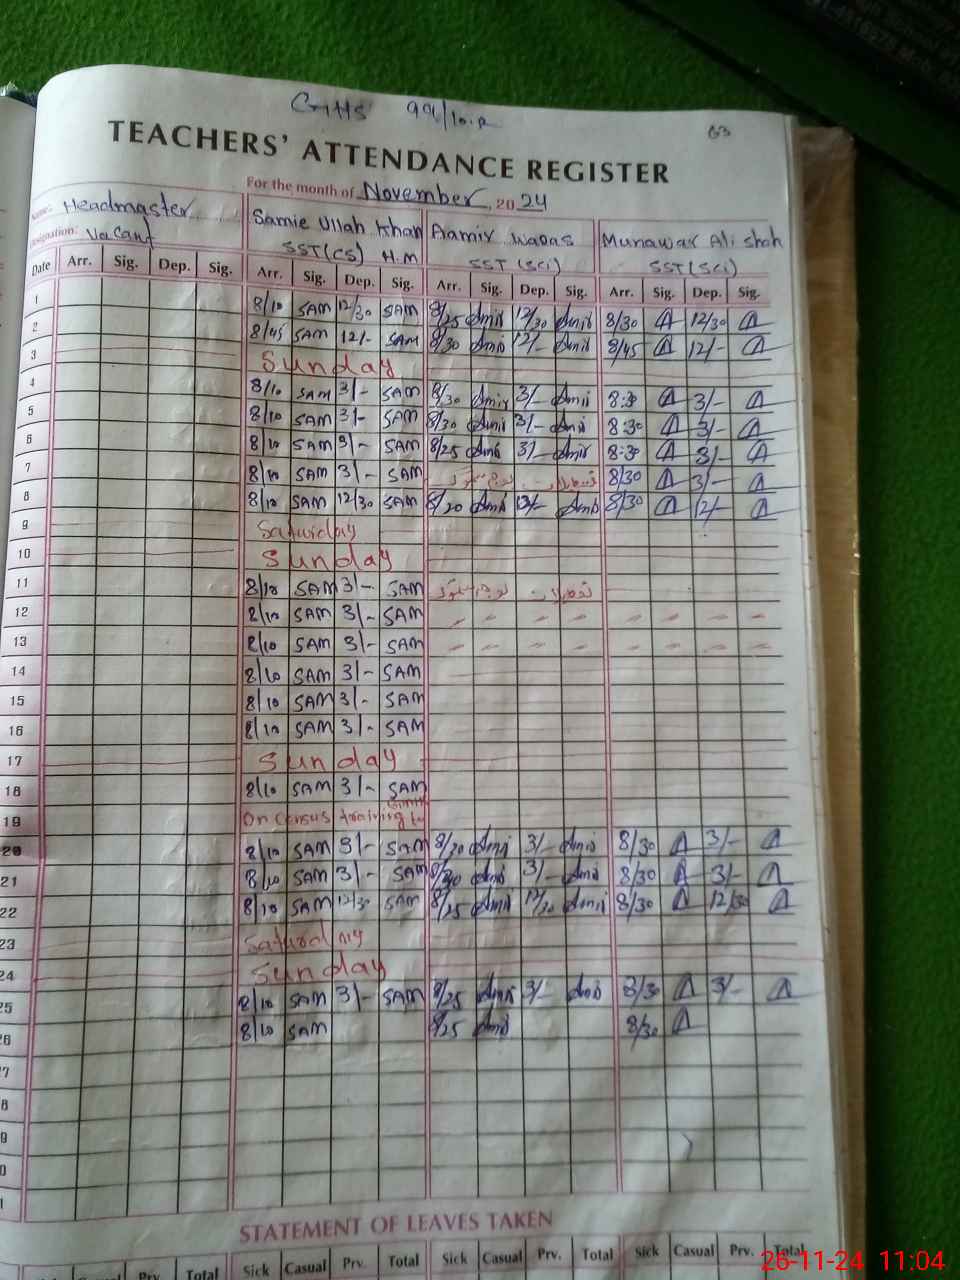 GHS 99/10.R
63
TEACHERS' ATTENDANCE REGISTER
For the month of November, 2024
Name: Headmaster Samie Ullah Khan Aamir Waqas Munawar Ali Shah
Designation: Vacant SST(CS) H.M SST (Sci) SST(Sci)
Date Arr. Sig. Dep. Sig. Arr. Sig. Dep. Sig. Arr. Sig. Dep. Sig. Arr. Sig. Dep. Sig.
1 8/10 SAM 12/30 SAM 8/25 Amir 12/30 Amir 8/30 A 12/30 A
2 8/45 SAM 12/- SAM 8/30 Amir 12/- Amir 8/45 A 12/- A
3 Sunday
4 8/10 SAM 3/- SAM 8/30 Amir 3/- Amir 8:30 A 3/- A
5 8/10 SAM 3/- SAM 8/30 Amir 3/- Amir 8:30 A 3/- A
6 8/10 SAM 3/- SAM 8/25 Amir 3/- Amir 8:30 A 3/- A
7 8/10 SAM 3/- SAM 8/30 A 3/- A
8 8/10 SAM 12/30 SAM 8/20 Amir 12/- Amir 8/30 A 12/- A
9 Saturday
10 Sunday
11 8/10 SAM 3/- SAM
12 8/10 SAM 3/- SAM
13 8/10 SAM 3/- SAM
14 8/10 SAM 3/- SAM
15 8/10 SAM 3/- SAM
16 8/10 SAM 3/- SAM
17 Sunday
18 8/10 SAM 3/- SAM
19 On Census training
20 8/10 SAM 3/- SAM 8/20 Amir 3/- Amir 8/30 A 3/- A
21 8/10 SAM 3/- SAM 8/30 Amir 3/- Amir 8/30 A 3/- A
22 8/10 SAM 12/30 SAM 8/25 Amir 12/30 Amir 8/30 A 12/30 A
23 Saturday
24 Sunday
25 8/10 SAM 3/- SAM 8/25 Amir 3/- Amir 8/30 A 3/- A
26 8/10 SAM 8/25 Amir 8/30 A
7
8
9
0
1
STATEMENT OF LEAVES TAKEN
Casual Prv. Total Sick Casual Prv. Total Sick Casual Prv. Total Sick Casual Prv. Total
26-11-24 11:04